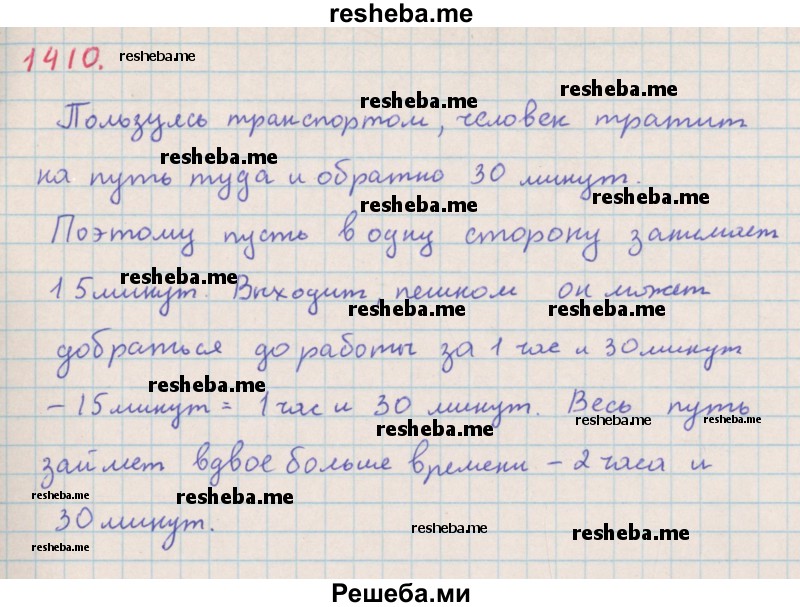 resheba.me
1410. resheba.me
resheba.me
resheba.me
Пользуясь транспортом, человек тратит
resheba.me
на путь туда и обратно 30 минут.
resheba.me
resheba.me
Поэтому пусть в одну сторону занимает
resheba.me
15 минут. Выходит, пешком он может
resheba.me resheba.me
добраться до работы за 1 час и 30 минут
resheba.me
- 15 минут = 1 час и 30 минут. Весь путь
resheba.me resheba.me resheba.me
займет вдвое больше времени - 2 часа и
resheba.me resheba.me
30 минут.
resheba.me resheba.me
resheba.me
Решеба.ми